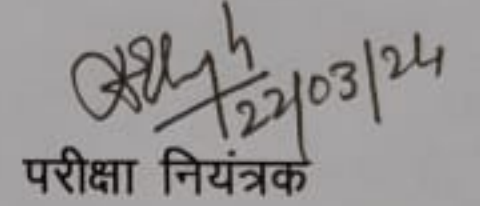 22/03/24
परीक्षा नियंत्रक